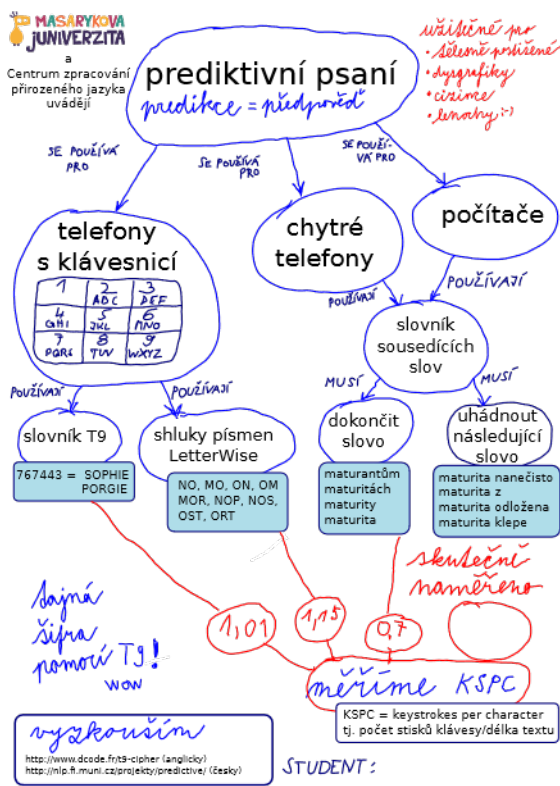 MASARYKOVA
JUNIVERZITA
a
Centrum zpracování
přirozeného jazyka
uvádějí
prediktivní psaní
predikce = předpověď
užitečné pro
• tělesně postižené
• dysgrafiky
• cizince
• lenochy :-)
SE POUŽÍVÁ
PRO
SE POUŽÍVÁ
PRO
SE POUŽÍ-
VÁ PRO
telefony
s klávesnicí
1 2 3
ABC DEF
4 5 6
GHI JKL MNO
7 8 9
PQRS TUV WXYZ
chytré
telefony
počítače
POUŽÍVAJÍ
POUŽÍVAJÍ
slovník
sousedících
slov
POUŽÍVAJÍ
POUŽÍVAJÍ
MUSÍ
MUSÍ
slovník T9
shluky písmen
LetterWise
dokončit
slovo
uhádnout
následující
slovo
767443 = SOPHIE
PORGIE
NO, MO, ON, OM
MOR, NOP, NOS,
OST, ORT
maturantům
maturitách
maturity
maturita
maturita nanečisto
maturita z
maturita odložena
maturita klepe
skutečně
naměřeno
1,01
1,15
0,7
tajná
šifra
pomocí T9!
WOW
měříme KSPC
KSPC = keystrokes per character
tj. počet stisků klávesy/délka textu
vyzkouším
http://www.dcode.fr/t9-cipher (anglicky)
http://nlp.fi.muni.cz/projekty/predictive/ (česky)
STUDENT: